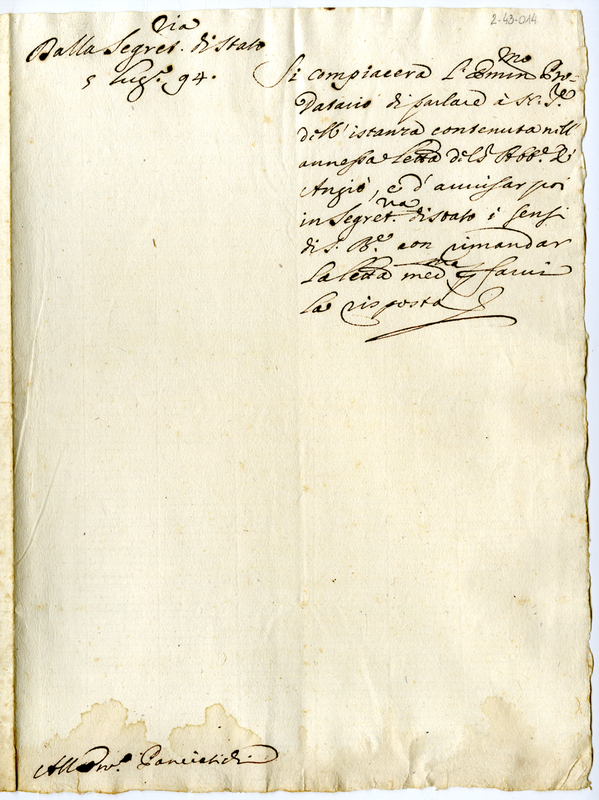 2-43-014
Dalla Segret.ria di Stato
5 lug.o 94.
Si compiacerà l'Emin.mo Pro-
Datario di parlare à N. S.re
dell'istanza contenuta nell'
annessa lettera del S.r Abb.e d'
Angiò, e d'avvisar poi
in Segret.ria di Stato i sensi
di S. B.e con rimandar
la lettera med.ma per farvi
la risposta
All' Em.o Panciatichi